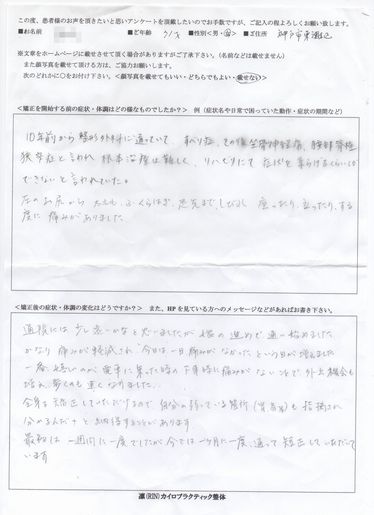 この度、患者様のお声を頂きたいと思いアンケートを頂戴したいのでお手数ですが、ご記入の程よろしくお願い致します。
■お名前 ■ご年齢 ■性別<男・女> ■ご住所 神戸市東灘区
※文章をホームページに載せさせて頂く場合がありますがご了承下さい。(名前などは載せません)
また顔写真を載せて頂ける方は、ご協力お願いします。
次のどれかに〇をお付け下さい。<顔写真を載せてもいい・どちらでもよい・載せない>
<矯正を開始する前の症状・体調はどの様なものでしたか?> 例(症状名や日常で困っていた動作・症状の期間など)
10年前から整形外科に通っていて、すべり症、その後坐骨神経痛、腰部脊椎
狭窄症と言われ根本治療は難しく、リハビリにて症状を和らげるくらいしか
できないと言われていた。
左のお尻から太もも、ふくらはぎ、足先まで、しびれ、座ったり、立ったり、する
度に痛みがありました。
<矯正後の症状・体調の変化はどうですか?> また、HPを見ている方へのメッセージなどがあればお書き下さい。
通院には少し遠いかなと思いましたが娘の進めで通い始めました
かなり痛みが軽減され"今日は一日痛みがなかった"という日が増えました
一番嬉しいのが電車に乗った時の下車時に痛みがないことで外出機会も
増え、歩くのも速くなりました。
全身を矯正していただけるので自分の弱っている箇所も指摘され
分かるんだナと納得することがあります
最初は一週間に一度でしたが今では一ヶ月に一度、通って矯正していただいて
います
凛(RIN)カイロプラクティック整体